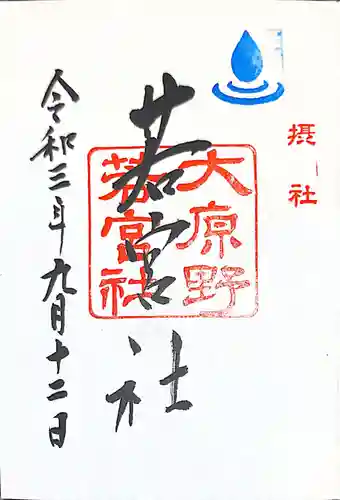 摂社
大原野
若宮社
若宮社
令和三年九月十二日